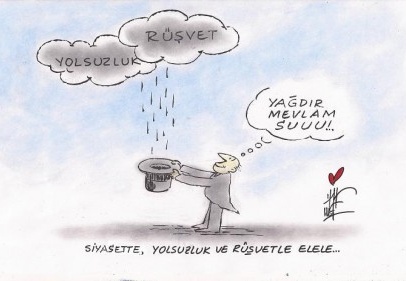 RÜŞVET
YOLSUZLUK
YAĞDIR
MEVLAM
SUUU!..
SİYASETTE, YOLSUZLUK VE RÜŞVETLE ELELE...